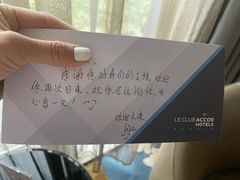 感谢您对我们的支持，欢迎
您再次回来，祝您居住愉快，开
心每一天！
LE CLUB ACCOR
HOTELS